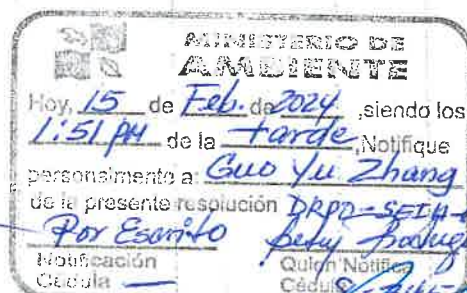 MINISTERIO DE
AMBIENTE
Hoy, 15 de Feb. de 2024, siendo los
1:51 PM de la tarde, Notifique
personalmente a Guo Yu Zhang
de la presente resolución DRPO-SEIA-
Por Escrito
Notificación Quien Notifica
Cédula Cédula